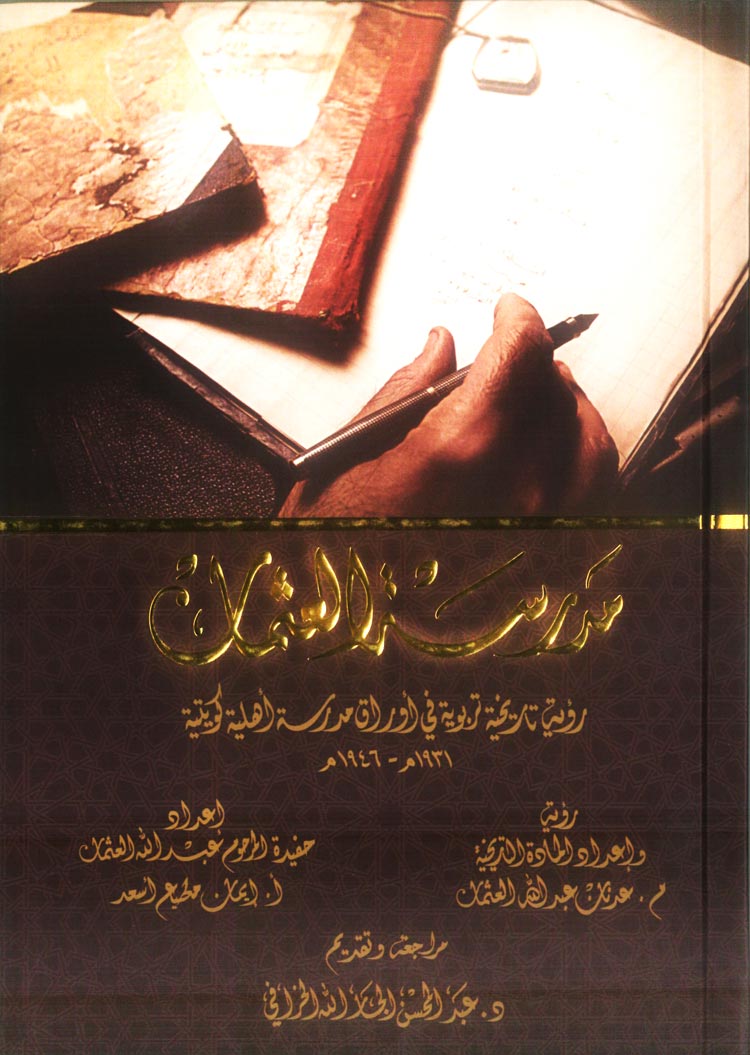 مدرسة العثمان
رؤية تاريخية تربوية في أوراق مدرسة أهلية كويتية
١٩٣١م - ١٩٤٦م
رؤية
وإعداد المادة التاريخية
م. عدنان عبدالله العثمان
إعداد
حفيدة المرحوم عبدالله العثمان
أ. إيمان مطيع أسعد
مراجعة وتقديم
د. عبدالمحسن الجارالله الخرافي